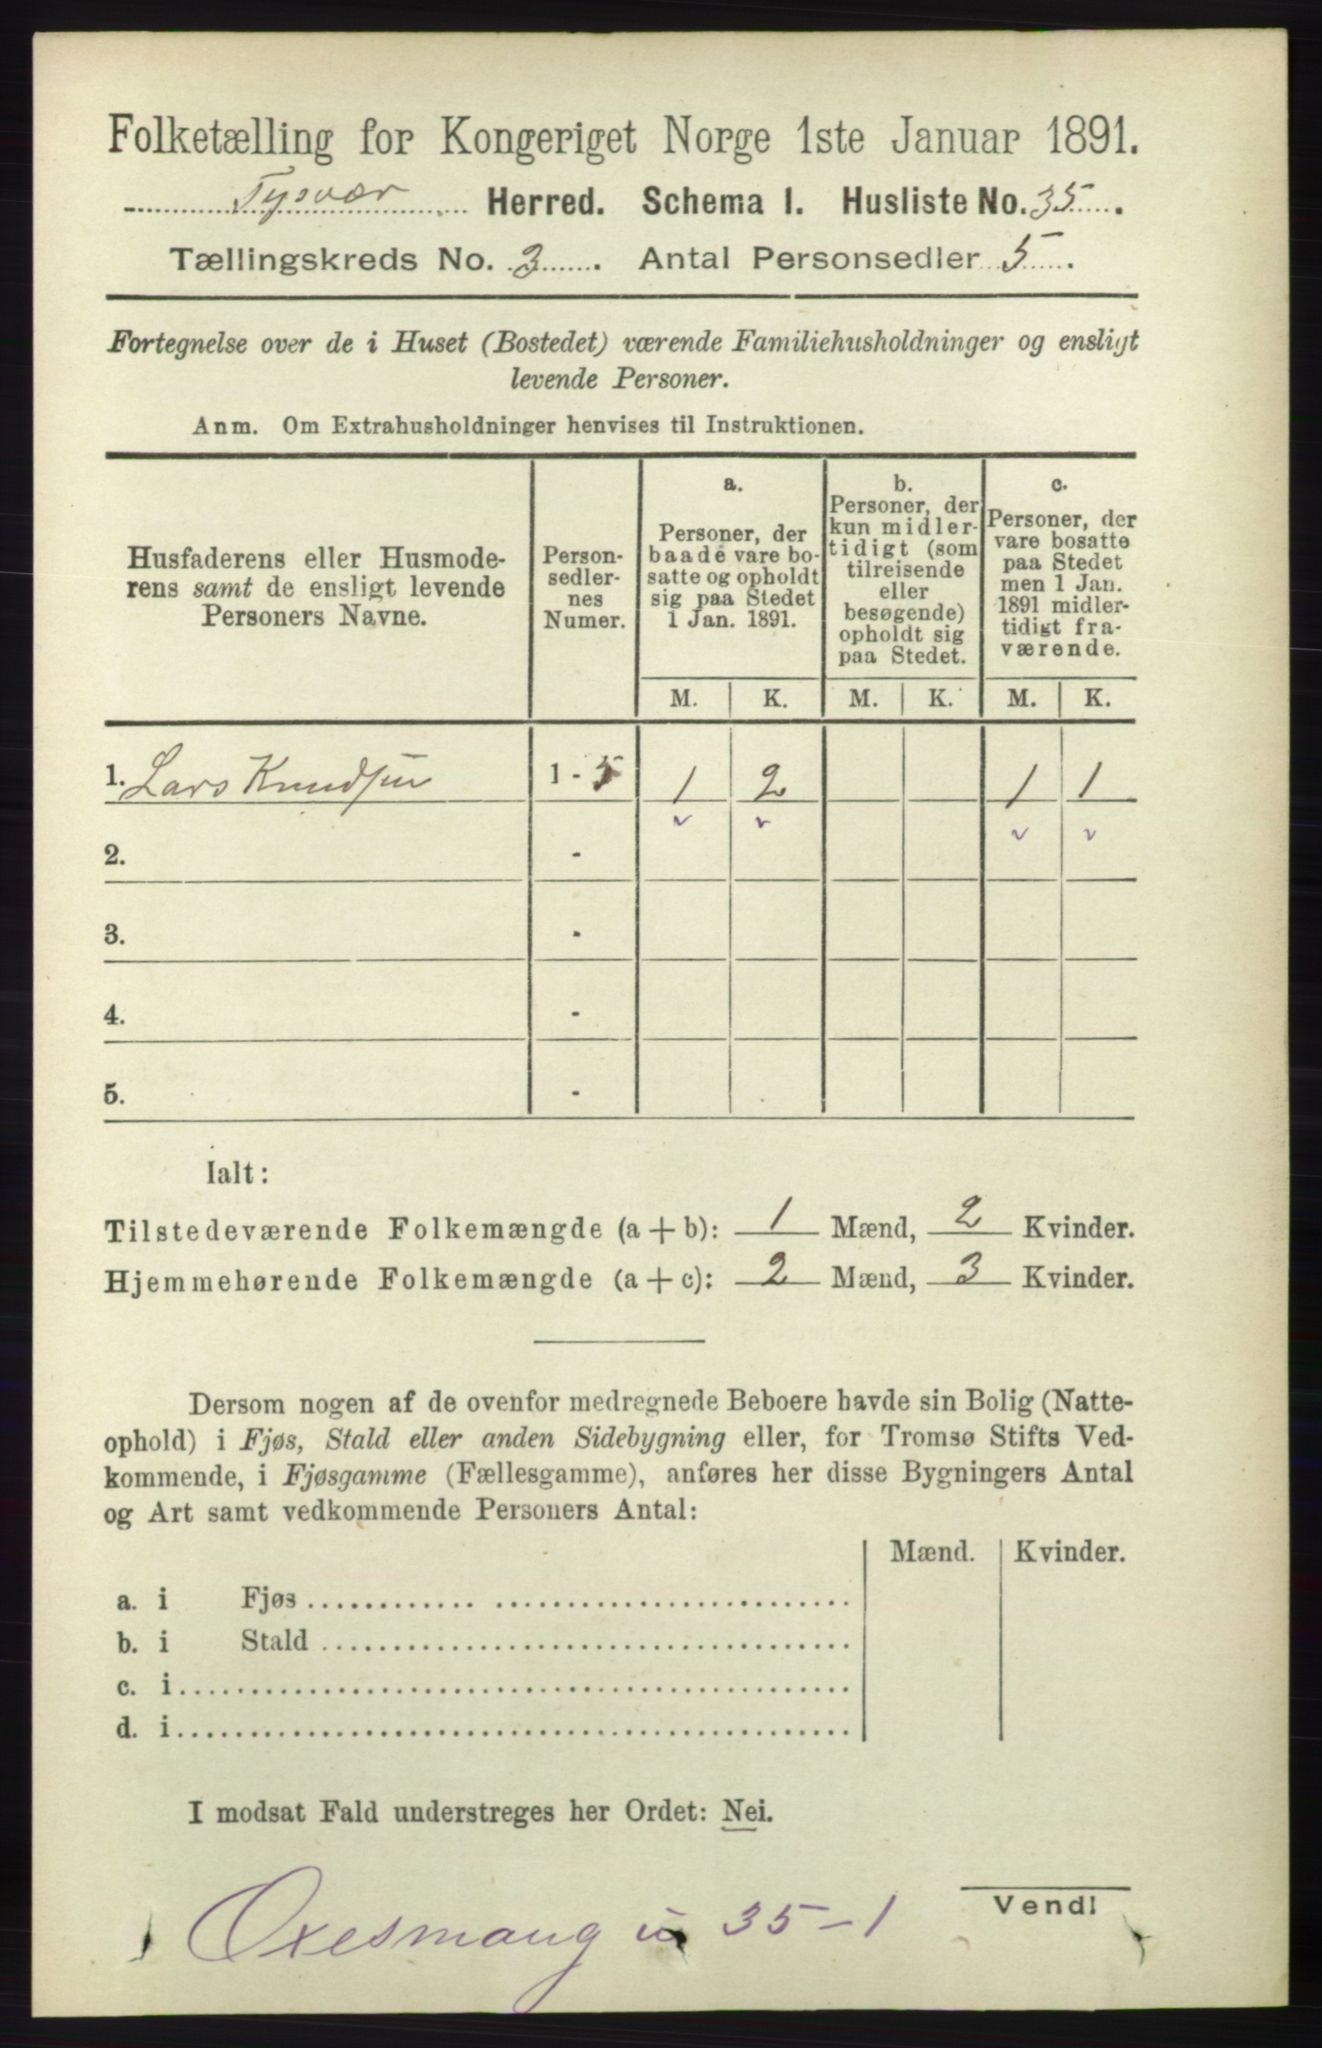 Folketælling for Kongeriget Norge 1ste Januar 1891.
Tysvær Herred. Schema I. Husliste No. 35.
Tællingskreds No. 3. Antal Personsedler 5.
Fortegnelse over de i Huset (Bostedet) værende Familiehusholdninger og ensligt
levende Personer.
Anm. Om Extrahusholdninger henvises til Instruktionen.
Husfaderens eller Husmode-
rens samt de ensligt levende
Personers Navne.
Person-
sedler-
nes
Numer.
a.
Personer, der
baade vare bo-
satte og opholdt
sig paa Stedet
1 Jan. 1891.
b.
Personer, der
kun midler-
tidigt (som
tilreisende
eller
besøgende)
opholdt sig
paa Stedet.
c.
Personer, der
vare bosatte
paa Stedet
men 1 Jan.
1891 midler-
tidigt fra-
værende.
M. K. M. K. M. K.
1. Lars Knudsen 1 - 5 1 2 1 1
2. -
3. -
4. -
5. -
Ialt:
Tilstedeværende Folkemængde (a + b): 1 Mænd, 2 Kvinder.
Hjemmehørende Folkemængde (a + c): 2 Mænd, 3 Kvinder.
Dersom nogen af de ovenfor medregnede Beboere havde sin Bolig (Natte-
ophold) i Fjøs, Stald eller anden Sidebygning eller, for Tromsø Stifts Ved-
kommende, i Fjøsgamme (Fællesgamme), anføres her disse Bygningers Antal
og Art samt vedkommende Personers Antal:
Mænd. Kvinder.
a. i Fjøs
b. i Stald
c. i
d. i
I modsat Fald understreges her Ordet: Nei.
Vend!
Oxesmang 35-1